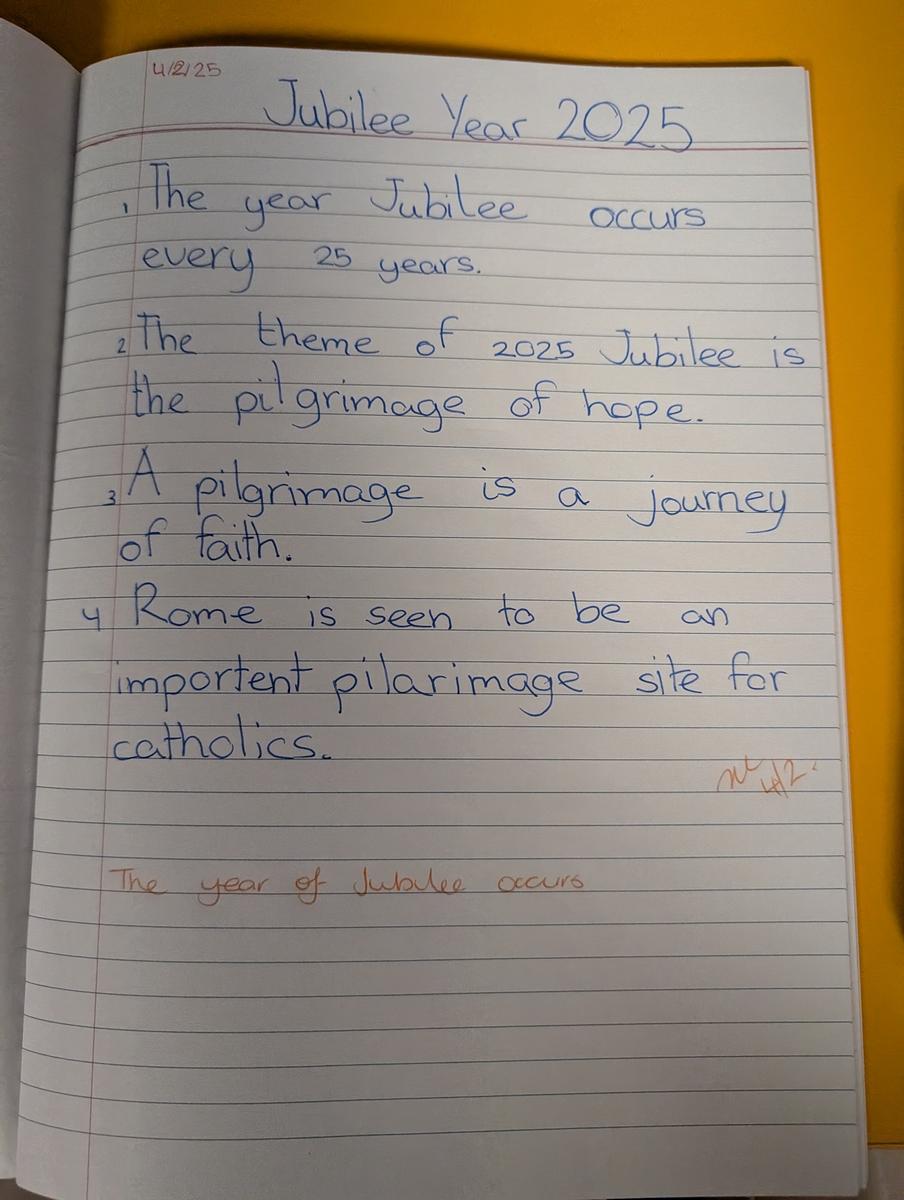 4/2/25
Jubilee Year 2025
1 The year Jubilee occurs
every 25 years.
2 The theme of 2025 Jubilee is
the pilgrimage of hope.
3 A pilgrimage is a journey
of faith.
4 Rome is seen to be an
importent pilarimage site for
catholics.
4/2.
The year of Jubilee occurs